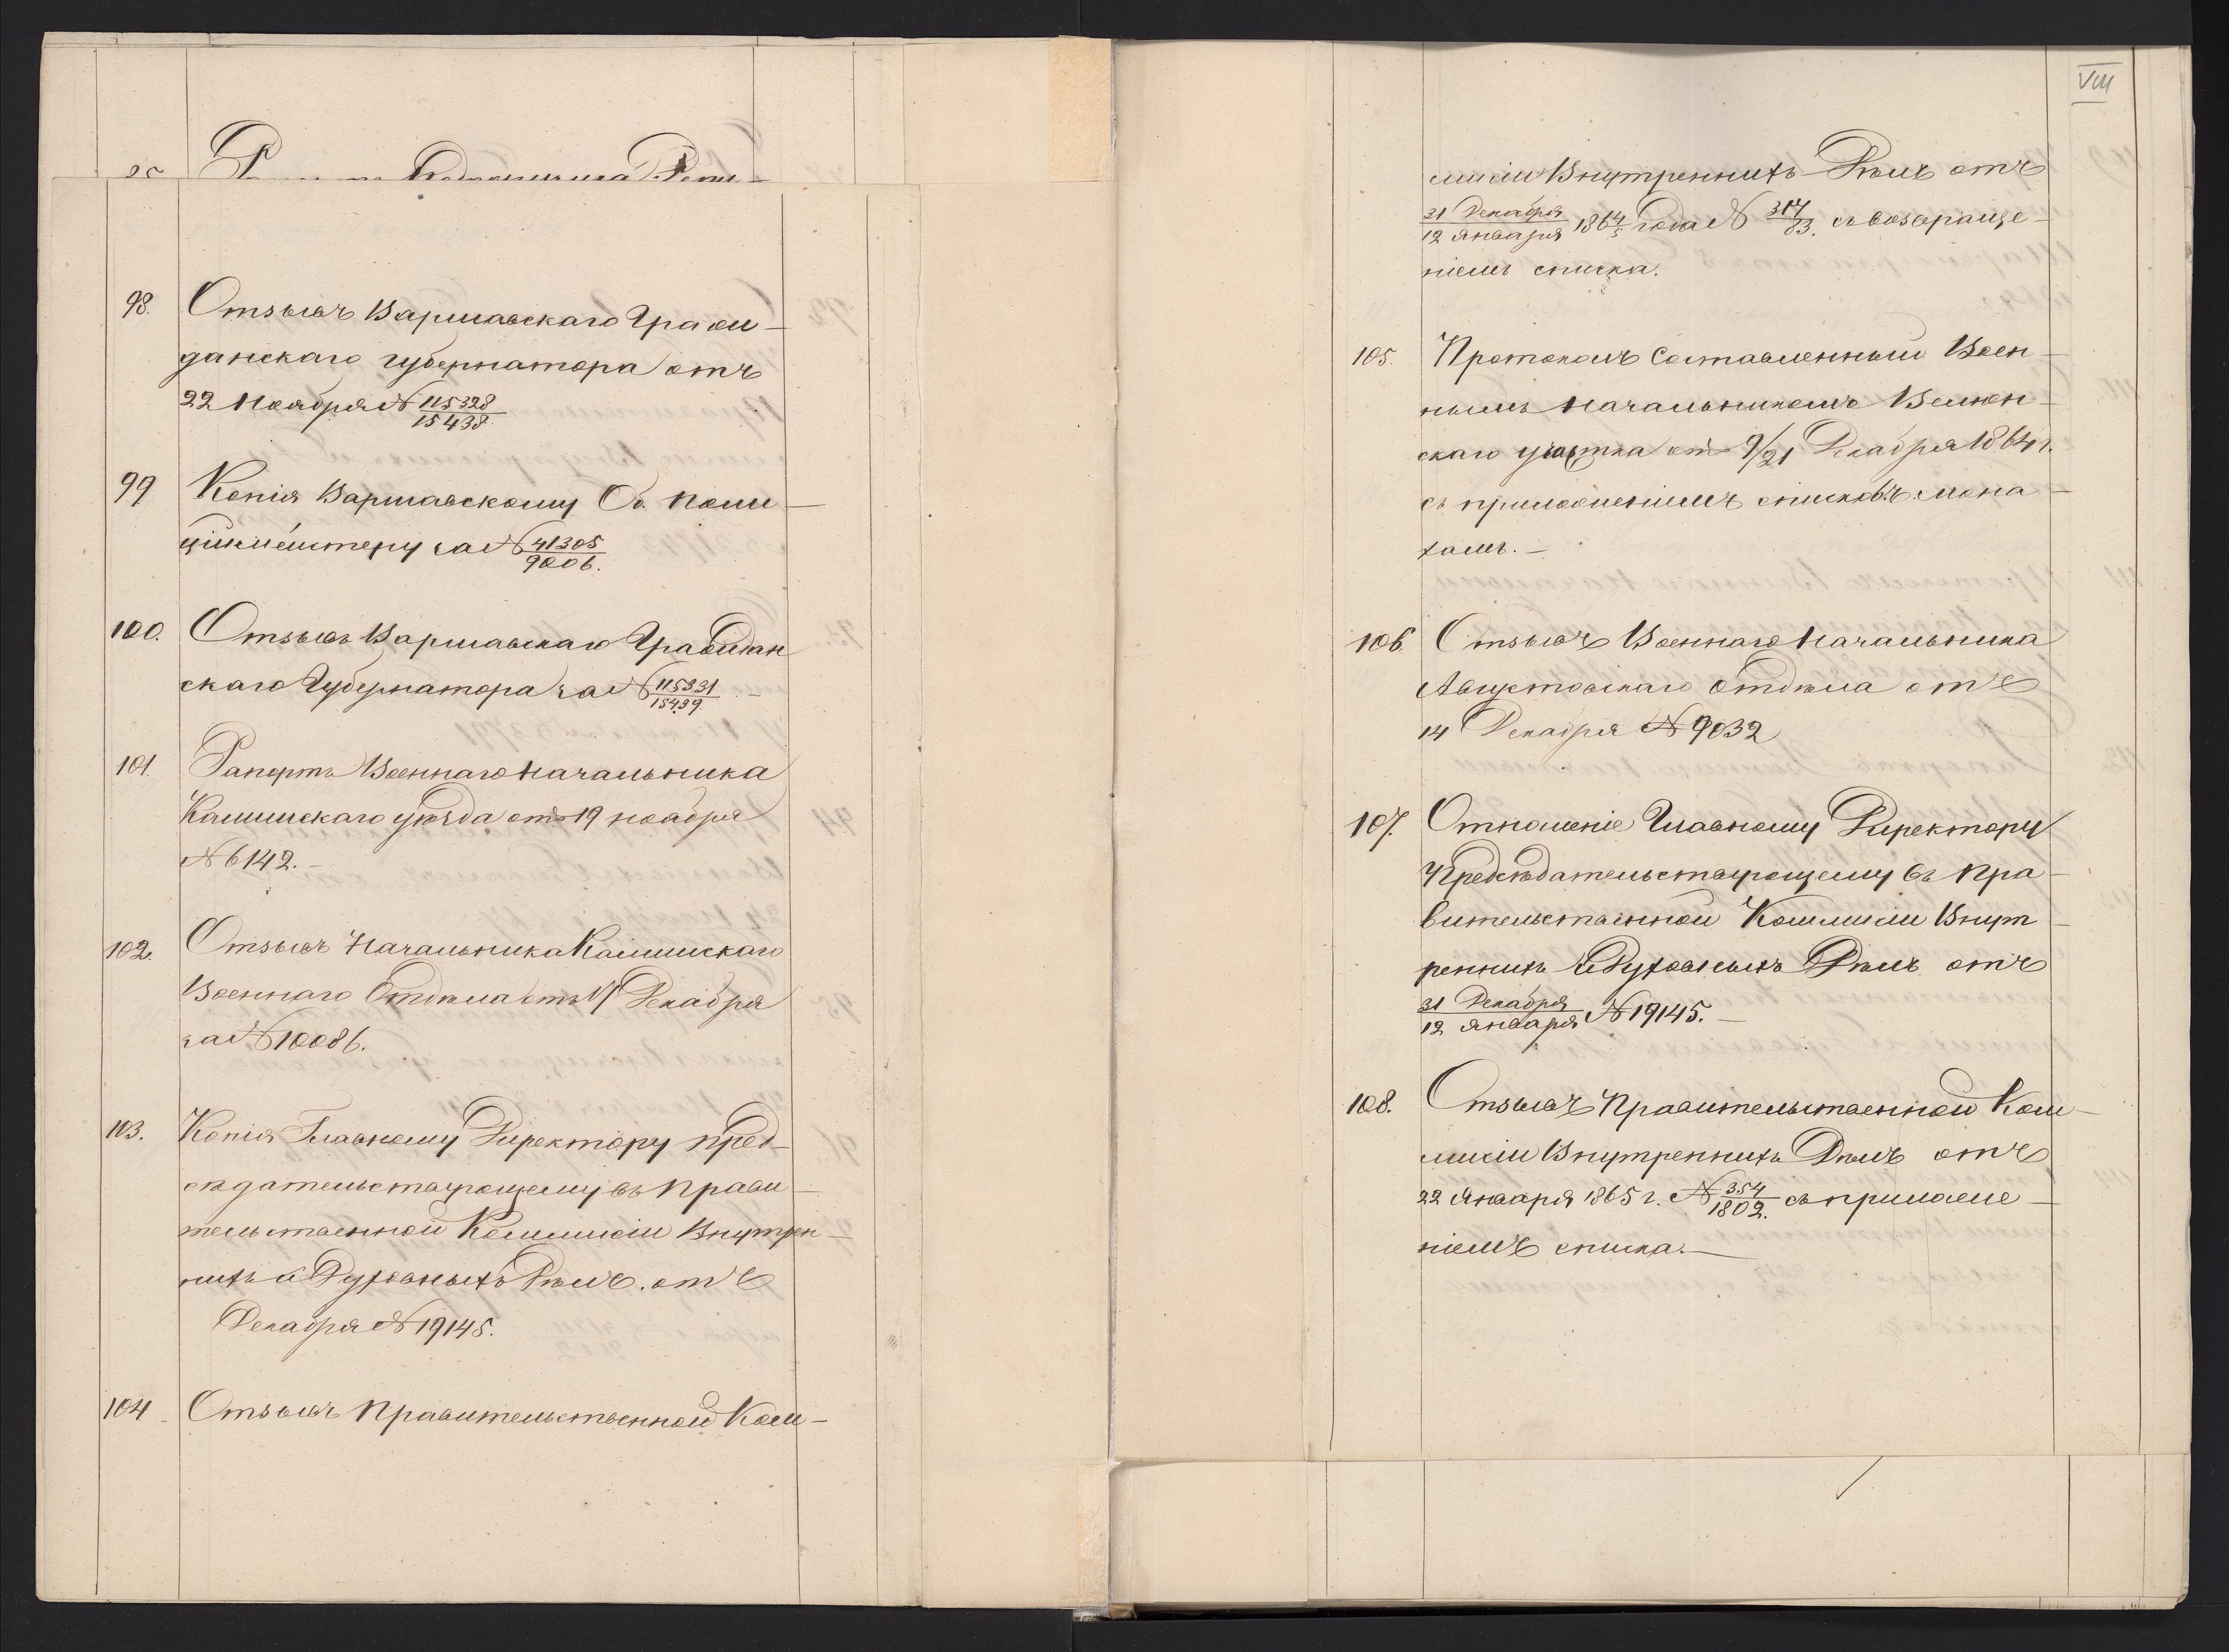 98. Отзывъ Варшавскаго Граж-
данскаго губернатора отъ
22 Ноября № 115328/15438
99 Копія Варшавскому Об. Поли-
цiймейстеру за № 41305/9006.
100. Отзывъ Варшавскаго Граждан
скаго Губернатора за № 115331/15439. -
101. Рапортъ Военнаго Начальника
Калишскаго уѣзда отъ 19 ноября
№ 6142. -
102. Отзывъ Начальника Калишскаго
Военнаго Отдѣла отъ 17 Декабря
за № 10086.
103. Копія Главному Директору пред-
сѣдательствующему въ Прави-
тельственной Коммисіи Внутрен-
нихъ и Духовныхъ Дѣлъ. отъ
Декабря № 19145.
104 Отзывъ Правительственной Ком-
VIII
мисіи Внутреннихъ Дѣлъ отъ
31 Декабря/12 Января 1864/5 года № 317/83. съ возвраще-
ніемъ списка.
105. Протоколъ составленный Воен-
нымъ Начальникомъ Велюн-
скаго участка отъ 9/21 Декабря 1864 г.
съ приложеніемъ списковъ мона-
хамъ. -
106. Отзывъ Военнаго Начальника
Августовскаго Отдѣла отъ
14 Декабря № 9032
107. Отношеніе Главному Директору
Предсѣдательствующему въ Пра-
вительственной Коммисіи Внут-
реннихъ и Духовныхъ Дѣлъ отъ
31 Декабря/12 Января № 19145. -
108. Отзывъ Правительственной Ком-
мисіи Внутреннихъ Дѣлъ отъ
22 Января 1865 г. № 354/1802. съ приложе-
ніемъ списка. -